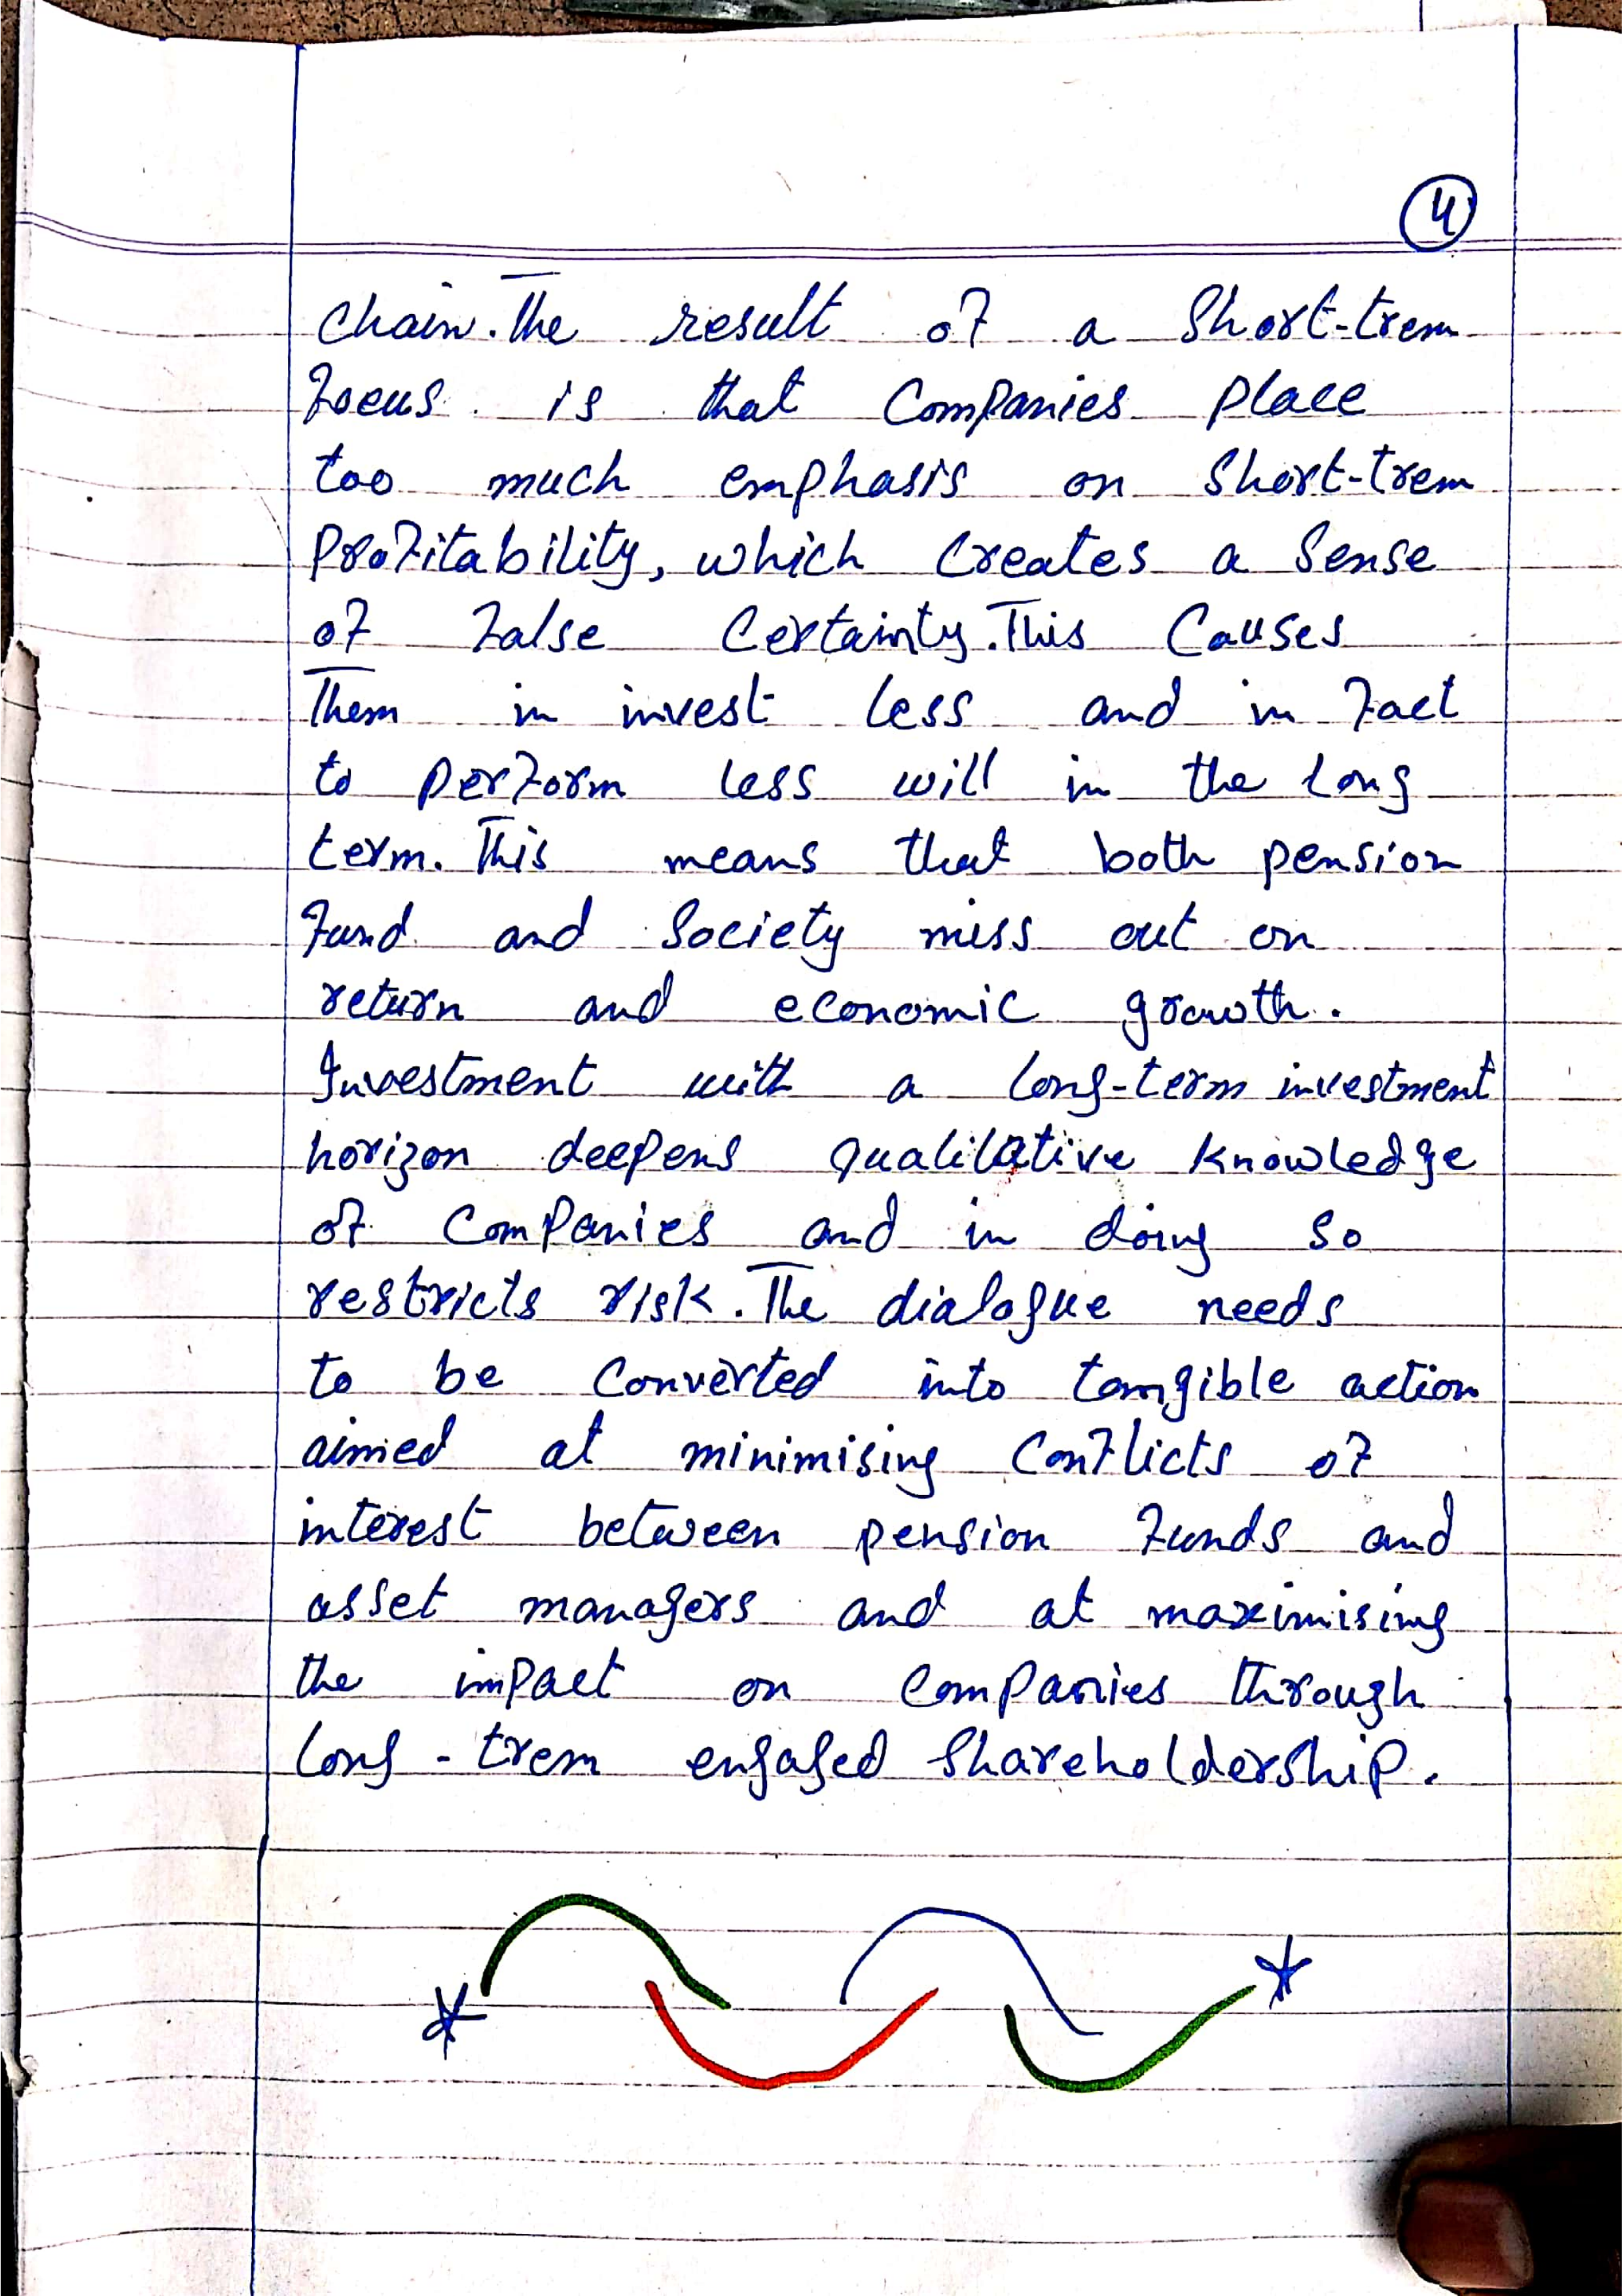 4
Chain. The result of a Short-trem
Focus is that Companies Place
too much emphasis on Short-trem
Profitability, which Creates a Sense
of False Certainty. This Causes
Them in invest less and in Fact
to perform less will in the Long
term. This means that both pension
Fund and Society miss out on
return and economic growth.
Investment with a long-term investment
horizon deepens qualitative Knowledge
of Companies and in doing So
restricts risk. The dialogue needs
to be Converted into tangible action
aimed at minimising Conflicts of
interest between pension Funds and
asset managers and at maximising
the impact on Companies through
long-trem engaged Shareholdership.